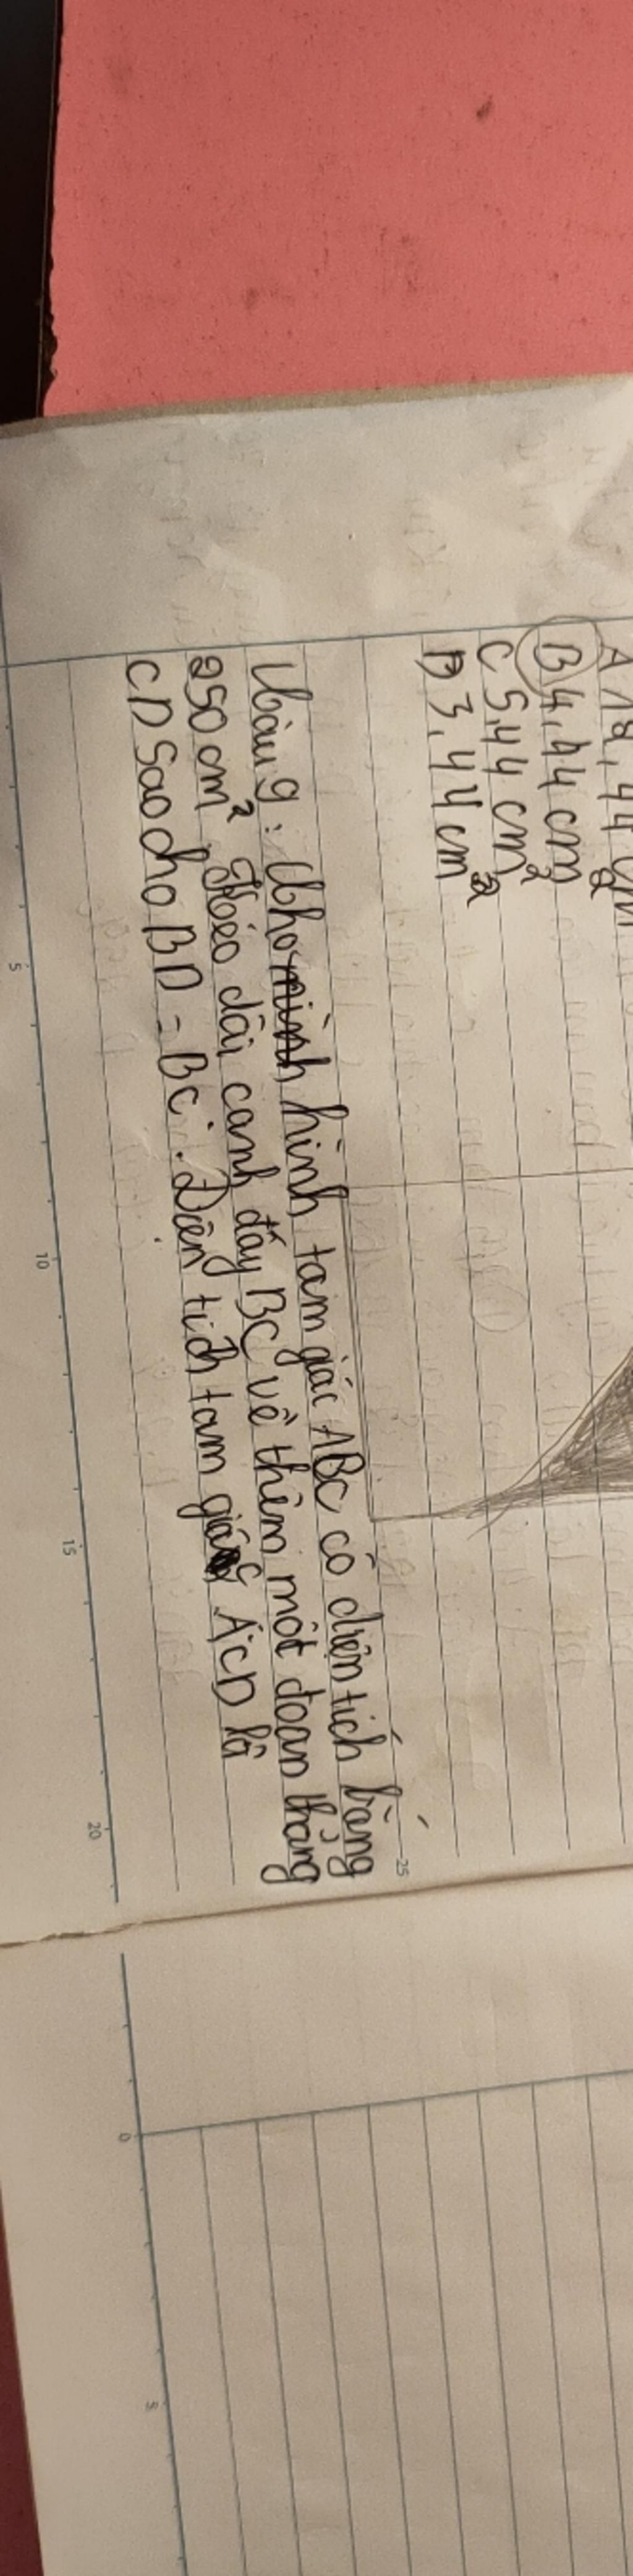 A 18,44 cm
B 4,44 cm²
C 5,44 cm²
D 3,44 cm²
25
Câu 9: Cho hình tam giác ABC có diện tích bằng
250 cm². Kéo dài cạnh đáy BC về thêm một đoạn thẳng
CD sao cho BD = BC. Diện tích tam giác ACD là
5
10
15
20
0
5